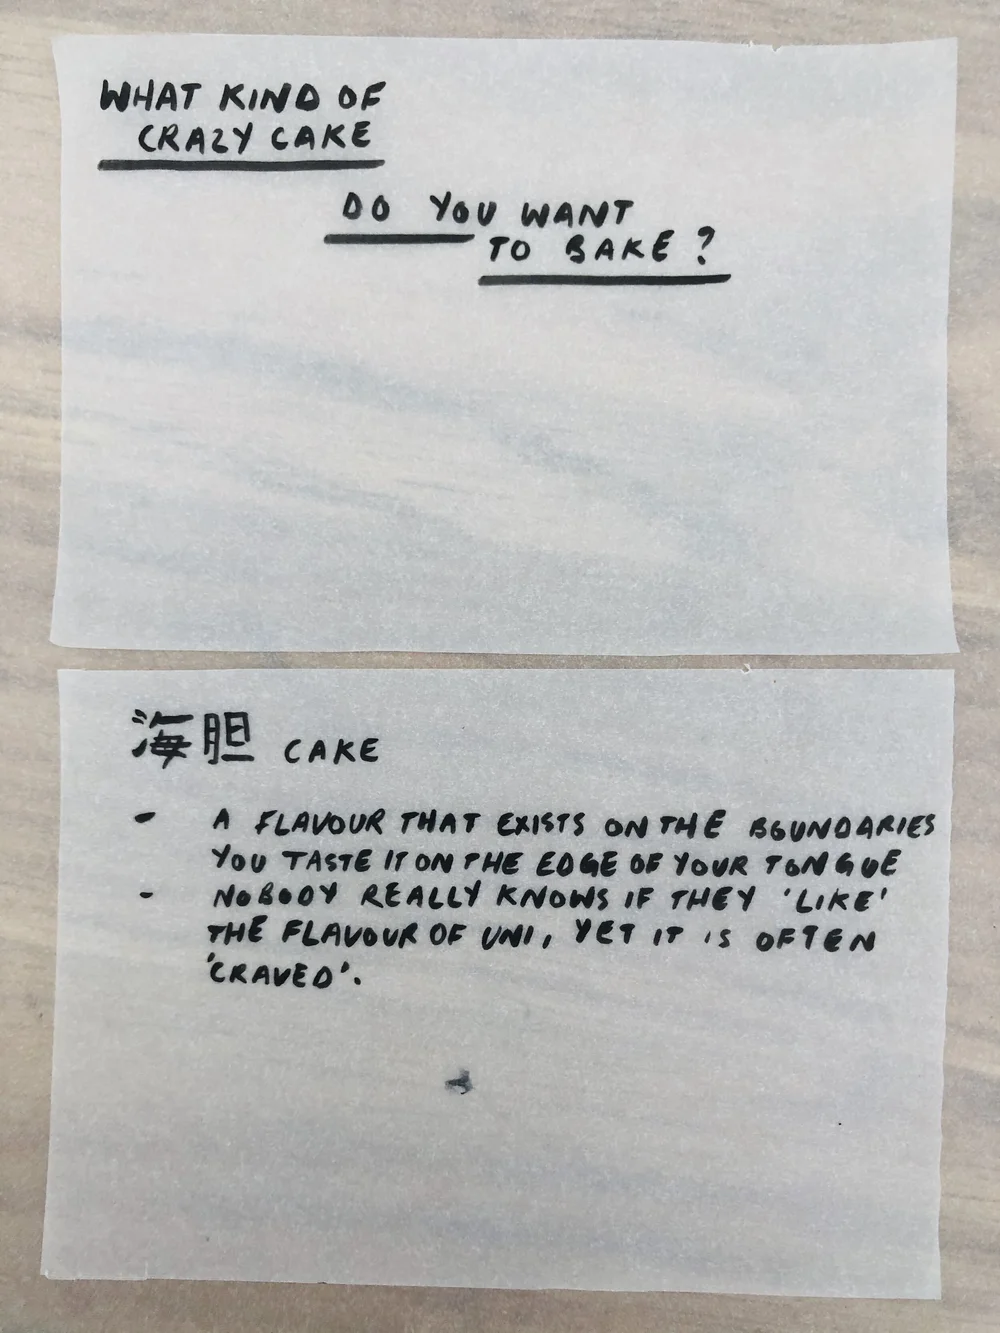 WHAT KIND OF
CRAZY CAKE
DO YOU WANT
TO BAKE?
海胆 CAKE
- A FLAVOUR THAT EXISTS ON THE BOUNDARIES
YOU TASTE IT ON THE EDGE OF YOUR TONGUE
- NOBODY REALLY KNOWS IF THEY 'LIKE'
THE FLAVOUR OF UNI, YET IT IS OFTEN
'CRAVED'.